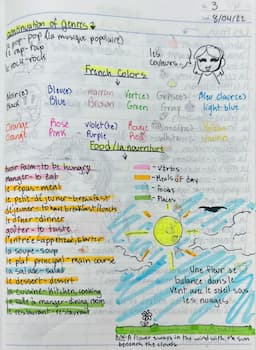 3
8/04/22
continuation of genres
le pop - pop (la musique populaire)
le rap - rap
le rock - rock
les couleurs
French Colors
Noir(e) Bleu(e) marron Vert(e) Gris(e) Bleu clair(e)
Black Blue Brown Green Gray light blue
Orange Rose violet(te) Rouge
Orange Pink Purple
Food/la nourriture
avoir faim - to be hungry
manger - to eat
le repas - meal
le petit-déjeuner - breakfast
le dîner - dinner
goûter - to taste
l'entrée - appetizer/starter
la soupe - soup
le plat principal - main course
la salade - salad
le dessert - dessert
la cuisine - kitchen, cooking
la salle à manger - dining room
le restaurant - restaurant
- Verbs
- Meals of day
- Foods
- Places
Une fleur se
balance dans le
vent avec le soleil
les nuages
A flower sways in the wind with the sun
the clouds